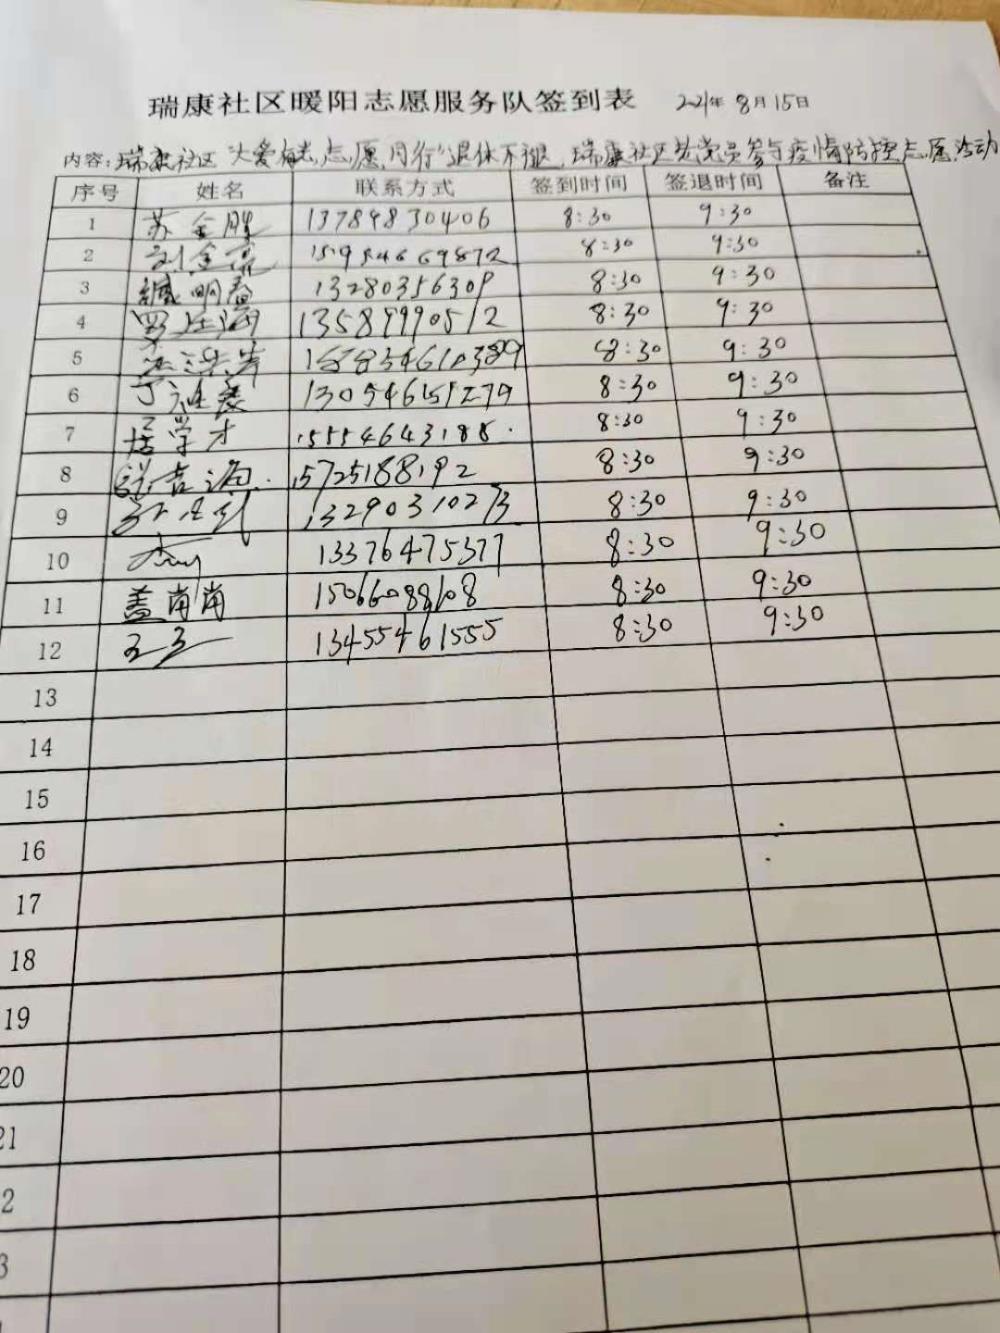 瑞康社区暖阳志愿服务队签到表 2021年8月15日
内容：瑞康社区"大爱有志，志愿同行"退休不褪，瑞康社区老党员参与疫情防控志愿活动
序号 姓名 联系方式 签到时间 签退时间 备注
1 苏金胜 13789830406 8:30 9:30
2 刘金 8:30 9:30
3 臧明 13280356309 8:30 9:30
4 13589990512 8:30 9:30
5 8:30 9:30
6 丁 13054651279 8:30 9:30
7 学才 15554643188 8:30 9:30
8 15725188192 8:30 9:30
9 13290310273 8:30 9:30
10 13376475377 8:30 9:30
11 盖南南 15066088108 8:30 9:30
12 王 13455461555 8:30 9:30
13
14
15
16
17
18
19
20
21
2
3